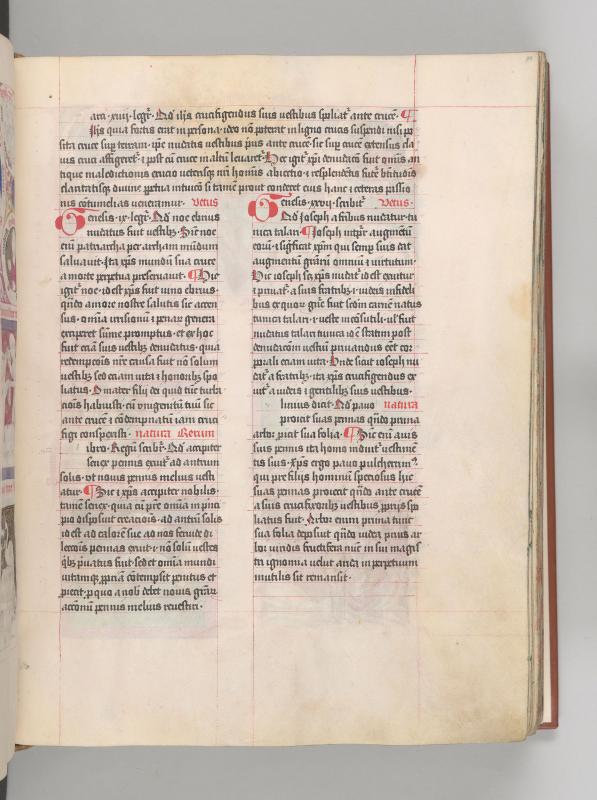 ara · xviii · legr̃ · Qd̓ iħs crucifigendus suis vestibus spoliatr̃ ante crucē · ¶
Iħs quia fortis erat in persona · ideo nō poterat in ligno crucis suspendi nisi po
sita cruce sup̱ terram · xp̄c nudatis vestibus p̓us ante crucē · sic sup̱ crucē extensus cla
uis cruci affigeretr̃ · ⁊ post cū cruce in altū leuaretr̃ · hec igitr̃ xp̄i denudacō fuit omīs an
tique maledictionis crucio veterisqꝫ nr̄i homīs abiectio · ⁊ resplendētis fuite beitudīs
claritatisqꝫ diuine ꝑpetua intuicō si tamē prout condecet eius hanc ⁊ ceteras passio
nis cōtumelias veneramur · vetus
Genesis · ix · legr̃ · Qd̓ noe ebrius
nudatus fuit vestibꝫ · Sic̄ noe
eni patriarcha per archam mūdum
saluauit · Ita xp̄us mundū sua cruce
a morte perpetua preseruauit · ¶ Hic
igr̃ noe · id est xp̄us fuit vino ebrius ·
qn̄do amore nostre salutis sic accen
sus · omīa irrisionū ⁊ penar̄ genera
exciperet sūme promptus · et ex hoc
fuit eciā suis vestibꝫ denudatus · qua
redempcōis nr̄e causa fuit nō solum
vestibꝫ sed eciam vita ⁊ honoribꝫ spo
liatus · O mater filij dei quid tūc turba
cōis habuisti · cū vnigenitū tuū sic
ante crucē ⁊ cōdempnatū iam cruci
figi conspexisti · natura Rerum
ibro · Regū scribr̃ · Qd̓ accipiter
senex pennis exuitr̃ ad antrum
solis · vt nouis pennis melius vesti
atur · ¶ Sic ⁊ xp̄us accipiter nobilis ·
tamē senex · quia cū p̄re omīa in prīci
pio disposuit creacōis · ad antrū solis
id est ad calorē sue ad nos feruide di
lecōis pennas exuit · ⁊ nō solū vestes
q̓bꝫ p̓uatus fuit sed et omīa mundi
vitamqꝫ ꝓpriā cōtempsit penitus et
piecit · ꝑ quo a nob̓ debet nouis grār̄
accōnū pennis melius reuestiri ·
Genesis · xxxvii · scribitr̃ vetus ·
Qd̓ Joseph a fr̄ibus nudatur tu
nica talari · ¶ Joseph int̓pr̃ augmētū
eqm̄ ⁊ significat xp̄m qui semp̱ suis dat
augmentū gr̄ar̄ omniū ⁊ virtutum ·
Hic ioseph scꝫ xp̄us nudatr̃ id est exuitur
⁊ priuatr̃ · a suis fratribꝫ · ⁊ iudeis infideli
bus ex quor̄ gn̄e fuit scd̓m carnē natus
tunica talari · ⁊ veste incōsutili · vl̓ fuit
nudatus talari tunica id ē statim post
denudacōm vestiū priuandus eēt cor
porali eciam vita · Vnde sicut ioseph nu
datr̃ a fratribꝫ · ita xp̄us crucifigendus ex
uitr̃ a iudeis ⁊ gentilibꝫ suis vestibus ·
linius dicit · Qd̓ pauo natura
proicit suas pennas qn̄do prima
arbor p̓icit sua folia · ¶ Sic̄ eni auis
suis pennis ita homo induitr̃ vestimē
tis suis · xp̄us ergo pauo pulcherrim9
qui pre filijs hominū speciosus hic
suas pennas proiecit qn̄do ante crucē
a suis crucifixoribꝫ vestibus ꝓprijs spo
liatus fuit · Arbor enim prima tunc
sua folia deposuit qn̄do iudea prius ar
bor viridis fructifera nūc in sui magis
tra ignomia velut arida in perpetuum
inutilis sit remansit ·